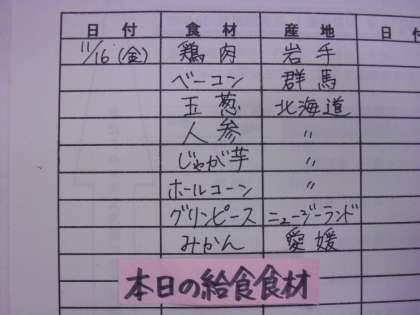 日付 食材 産地 日付
11/16(金) 鶏肉 岩手
ベーコン 群馬
玉葱 北海道
人参 〃
じゃが芋 〃
ホールコーン 〃
グリンピース ニュージーランド
みかん 愛媛
本日の給食食材